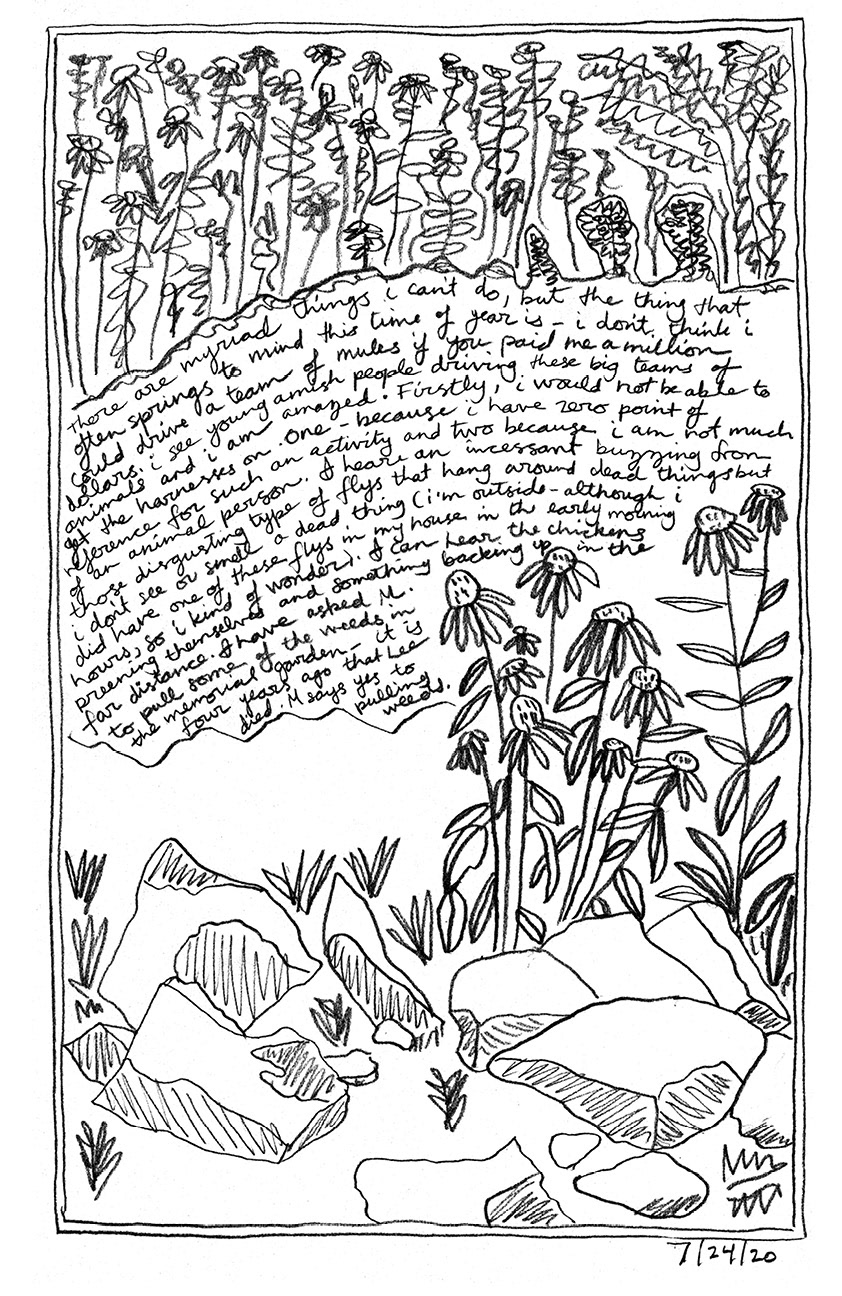 There are myriad things i can't do, but the thing that
often springs to mind this time of year is - i don't think i
could drive a team of mules if you paid me a million
dollars. i see young amish people driving these big teams of
animals and i am amazed. Firstly, i would not be able to
get the harnesses on. One - because i have zero point of
reference for such an activity and two because i am not much
of an animal person. I hear an incessant buzzing from
those disgusting type of flys that hang around dead things but
i don't see or smell a dead thing (i'm outside - although i
did have one of these flys in my house in the early morning
hours, so i kind of wonder). I can hear the chickens
preening themselves and something backing up in the
far distance. I have asked M.
to pull some of the weeds in
the memorial garden - it is
four years ago that Lee
died. M says yes to
pulling
weeds.
7/24/20